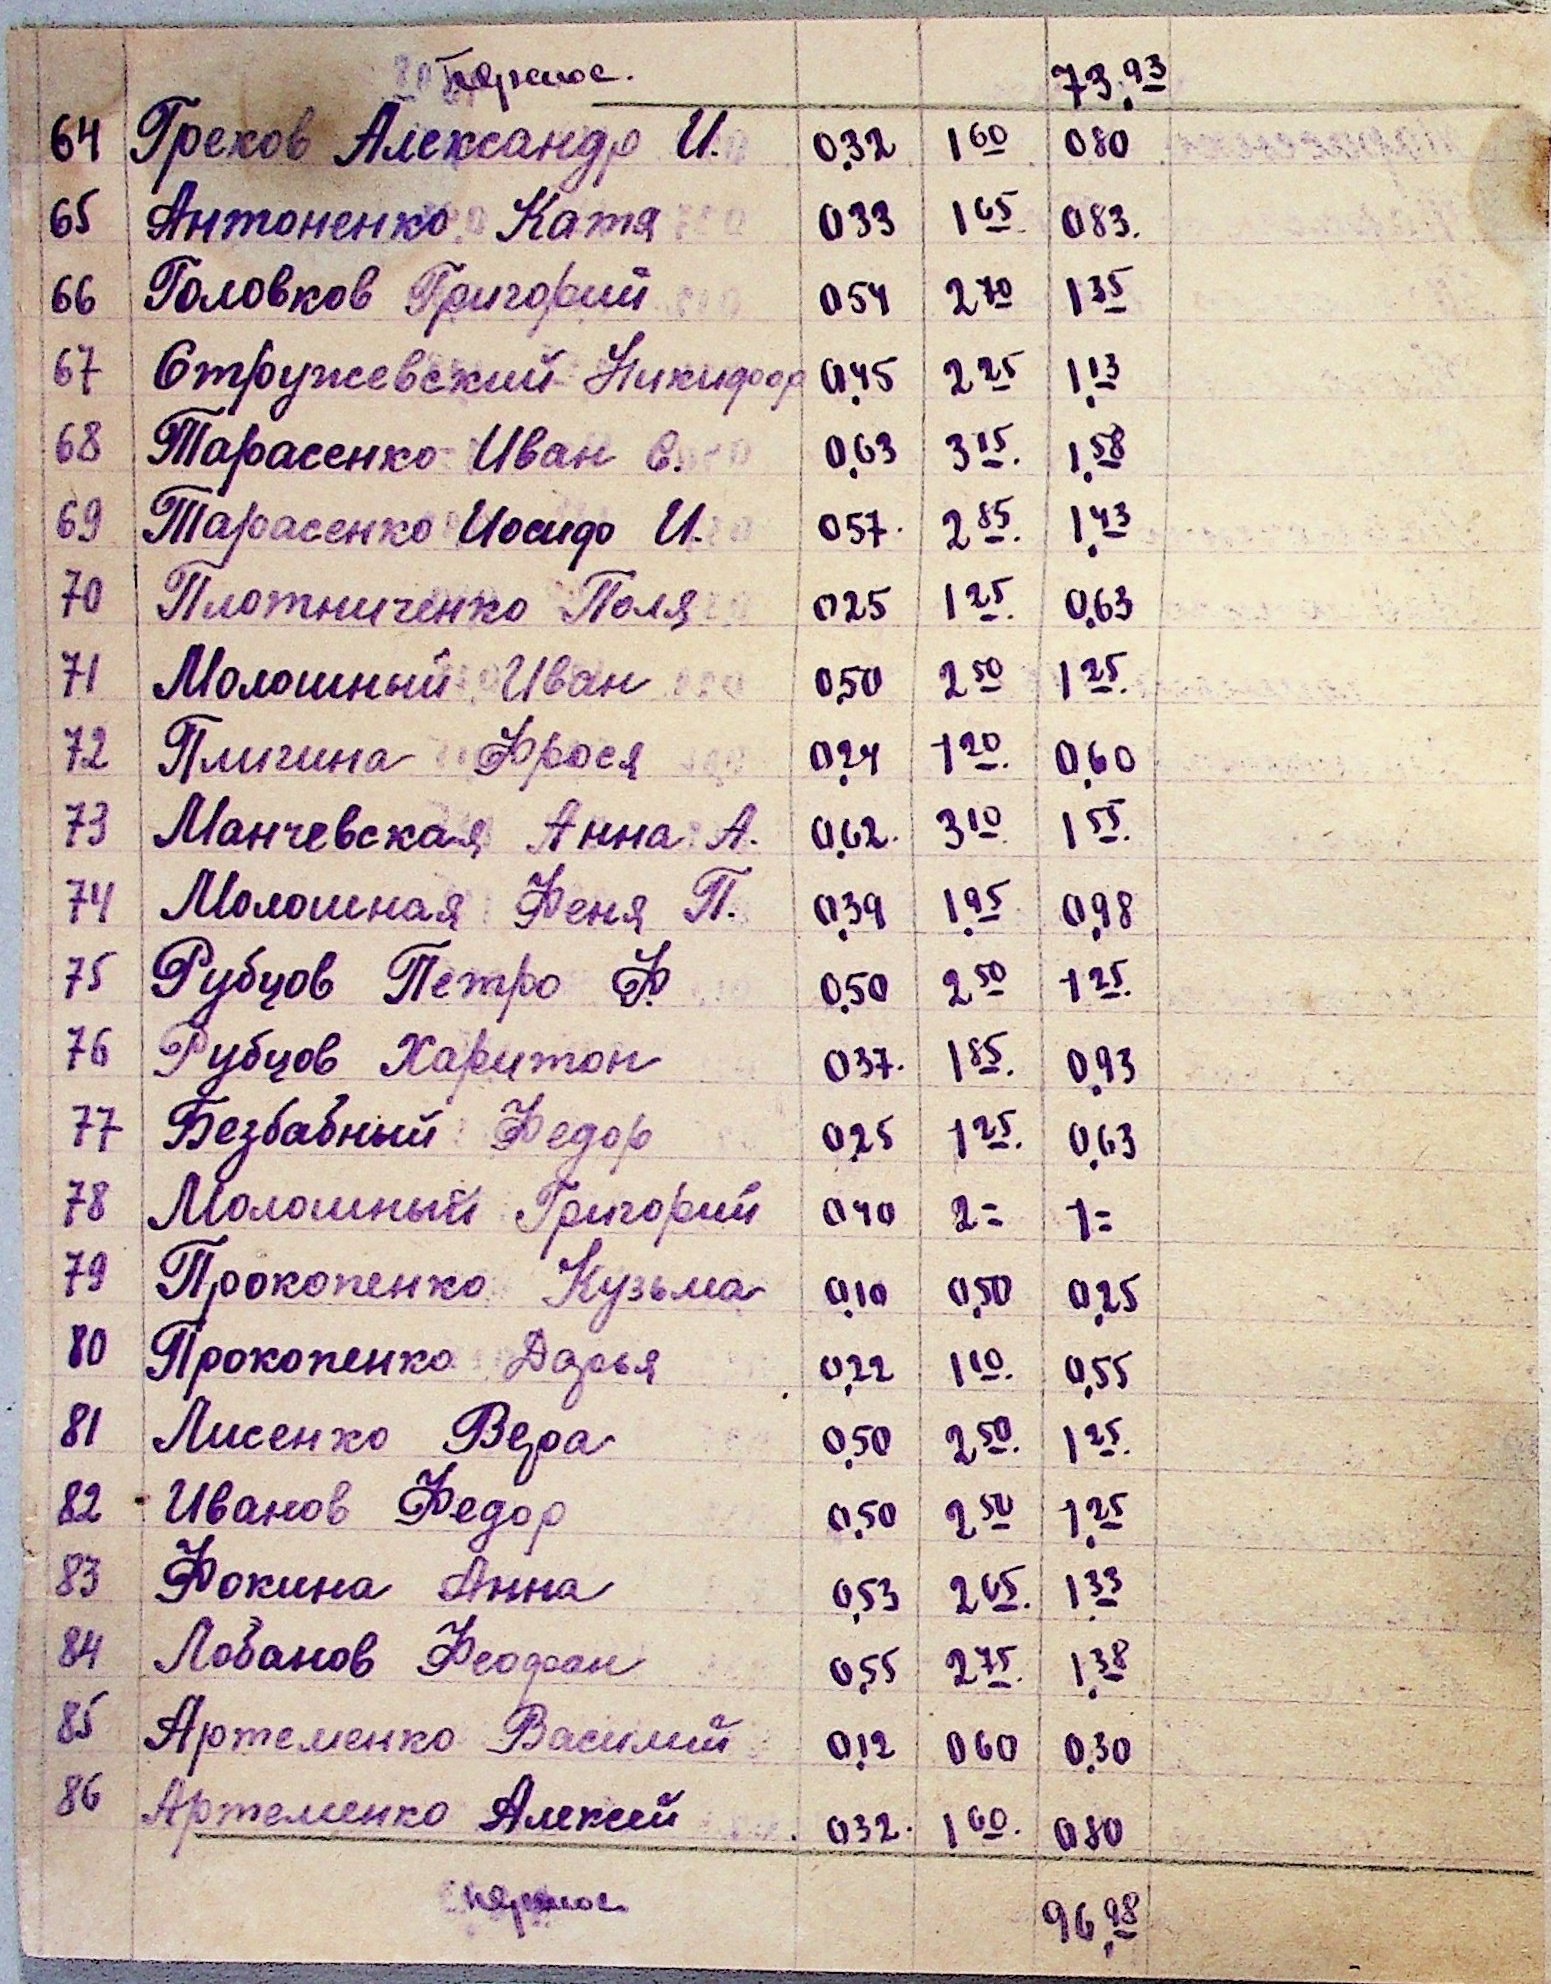 Перенос. 73,93
64 Греков Александр И. 0,32 1 60 0 80
65 Антоненко Катя 0 33 1 65 0 83.
66 Головков Григорий 0 54 2 70 1 35
67 Стружевский Никифор 0,45 2 25 1,13
68 Тарасенко Иван С. 0,63 3 15. 1,58
69 Тарасенко Иосиф И. 0 57. 2 85. 1,43
70 Плотниченко Поля 0 25 1 25. 0,63
71 Молошный Иван 0,50 2 50 1 25.
72 Пличина Фрося 0,24 1 20. 0,60
73 Манчевская Анна А. 0,62. 3 10 1 55.
74 Молошная Феня П. 0,39 1,95 0,98
75 Рубцов Петро Ф. 0,50 2 50 1 25.
76 Рубцов Харитон 0 37. 1 85. 0,93
77 Безбабный Федор 0,25 1 25. 0,63
78 Молошный Григорий 0 40 2= 1=
79 Прокопенко Кузьма 0,10 0,50 0,25
80 Прокопенко Дарья 0,22 1 10. 0,55
81 Лисенко Вера 0,50 2 50. 1 25.
82 Иванов Федор 0,50 2 50 1,25
83 Фокина Анна 0,53 2 65. 1,33
84 Лобанов Феофан 0,55 2 75. 1,38
85 Артеменко Василий 0,12 0 60 0,30
86 Артеменко Алексей 0 32. 1 60. 0 80
перенос. 96,98